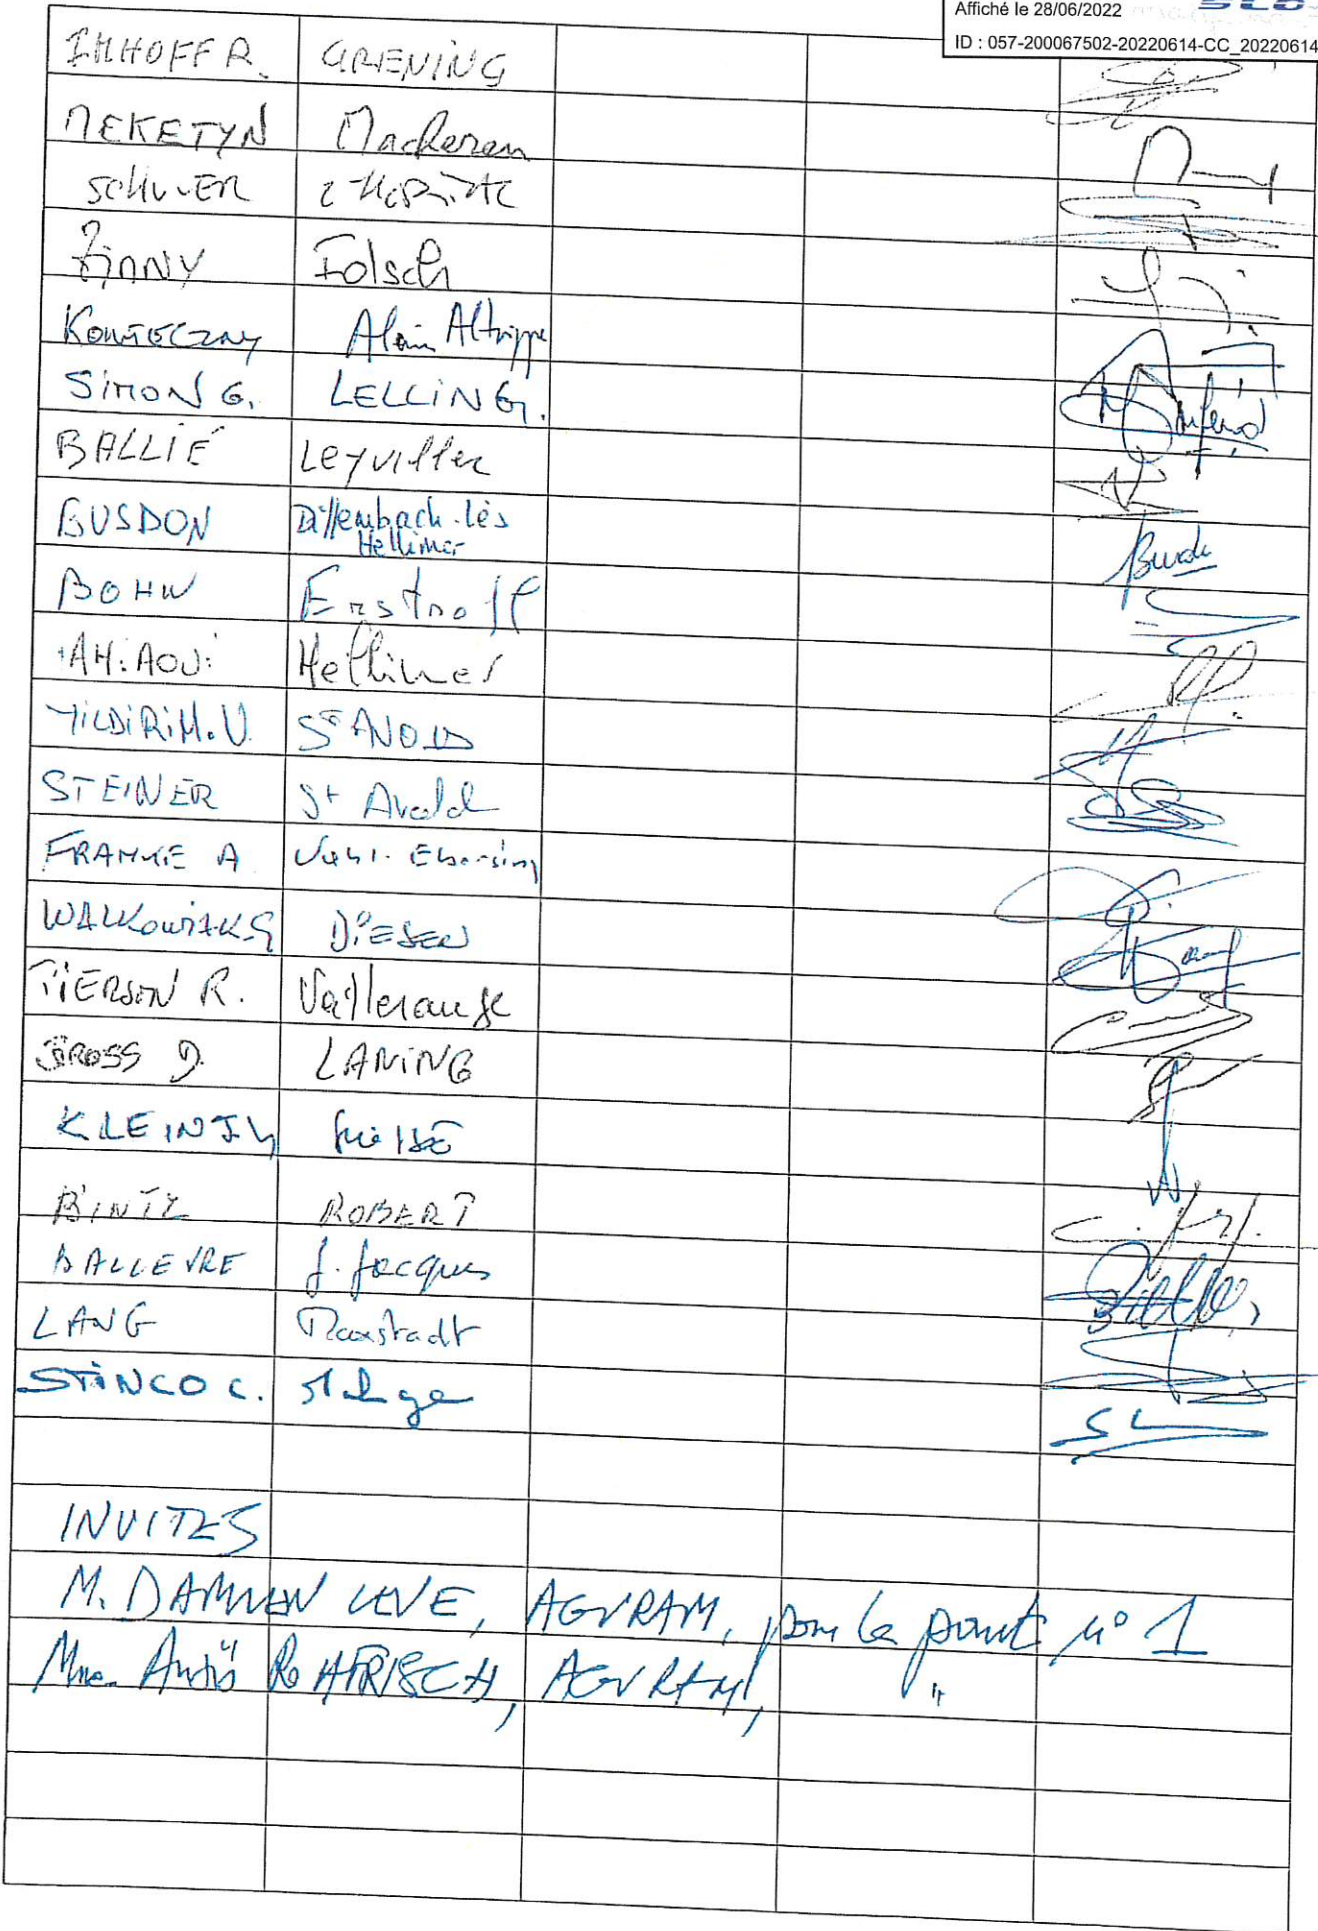 Affiché le 28/06/2022
ID : 057-200067502-20220614-CC_20220614
IMHOFF R. GRENING
MEKETYN Mackeren
SCHU-ER
ZINNY Folsch
KONIECZNY Alain Altrippe
SIMON G. LELLING.
BALLIÉ Leyviller
BUSDON Diffembach-lès
Hellimer
BOHN Erstroff
Hellimer
YILDIRIM.U. ST AVOLD
STEINER St Avold
FRANKE A Vahl-Ebersing
WALKOWIAK G DIESEN
TIERSEN R. Vallerange
GROSS D. LANING
KLEIN J
BINTZ ROBERT
BALLEVRE J. Jacques
LANG Maxstadt
STINCO C.
INVITES
M. DAMIEN LEVE, AGURAM, pour le point n° 1
Mme. Anaïs ROHFRISCH, AGURAM, "